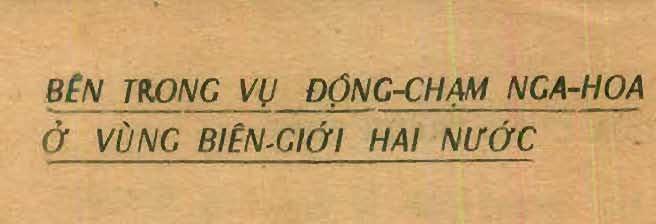 BÊN TRONG VỤ ĐỘNG-CHẠM NGA-HOA
Ở VÙNG BIÊN-GIỚI HAI NƯỚC